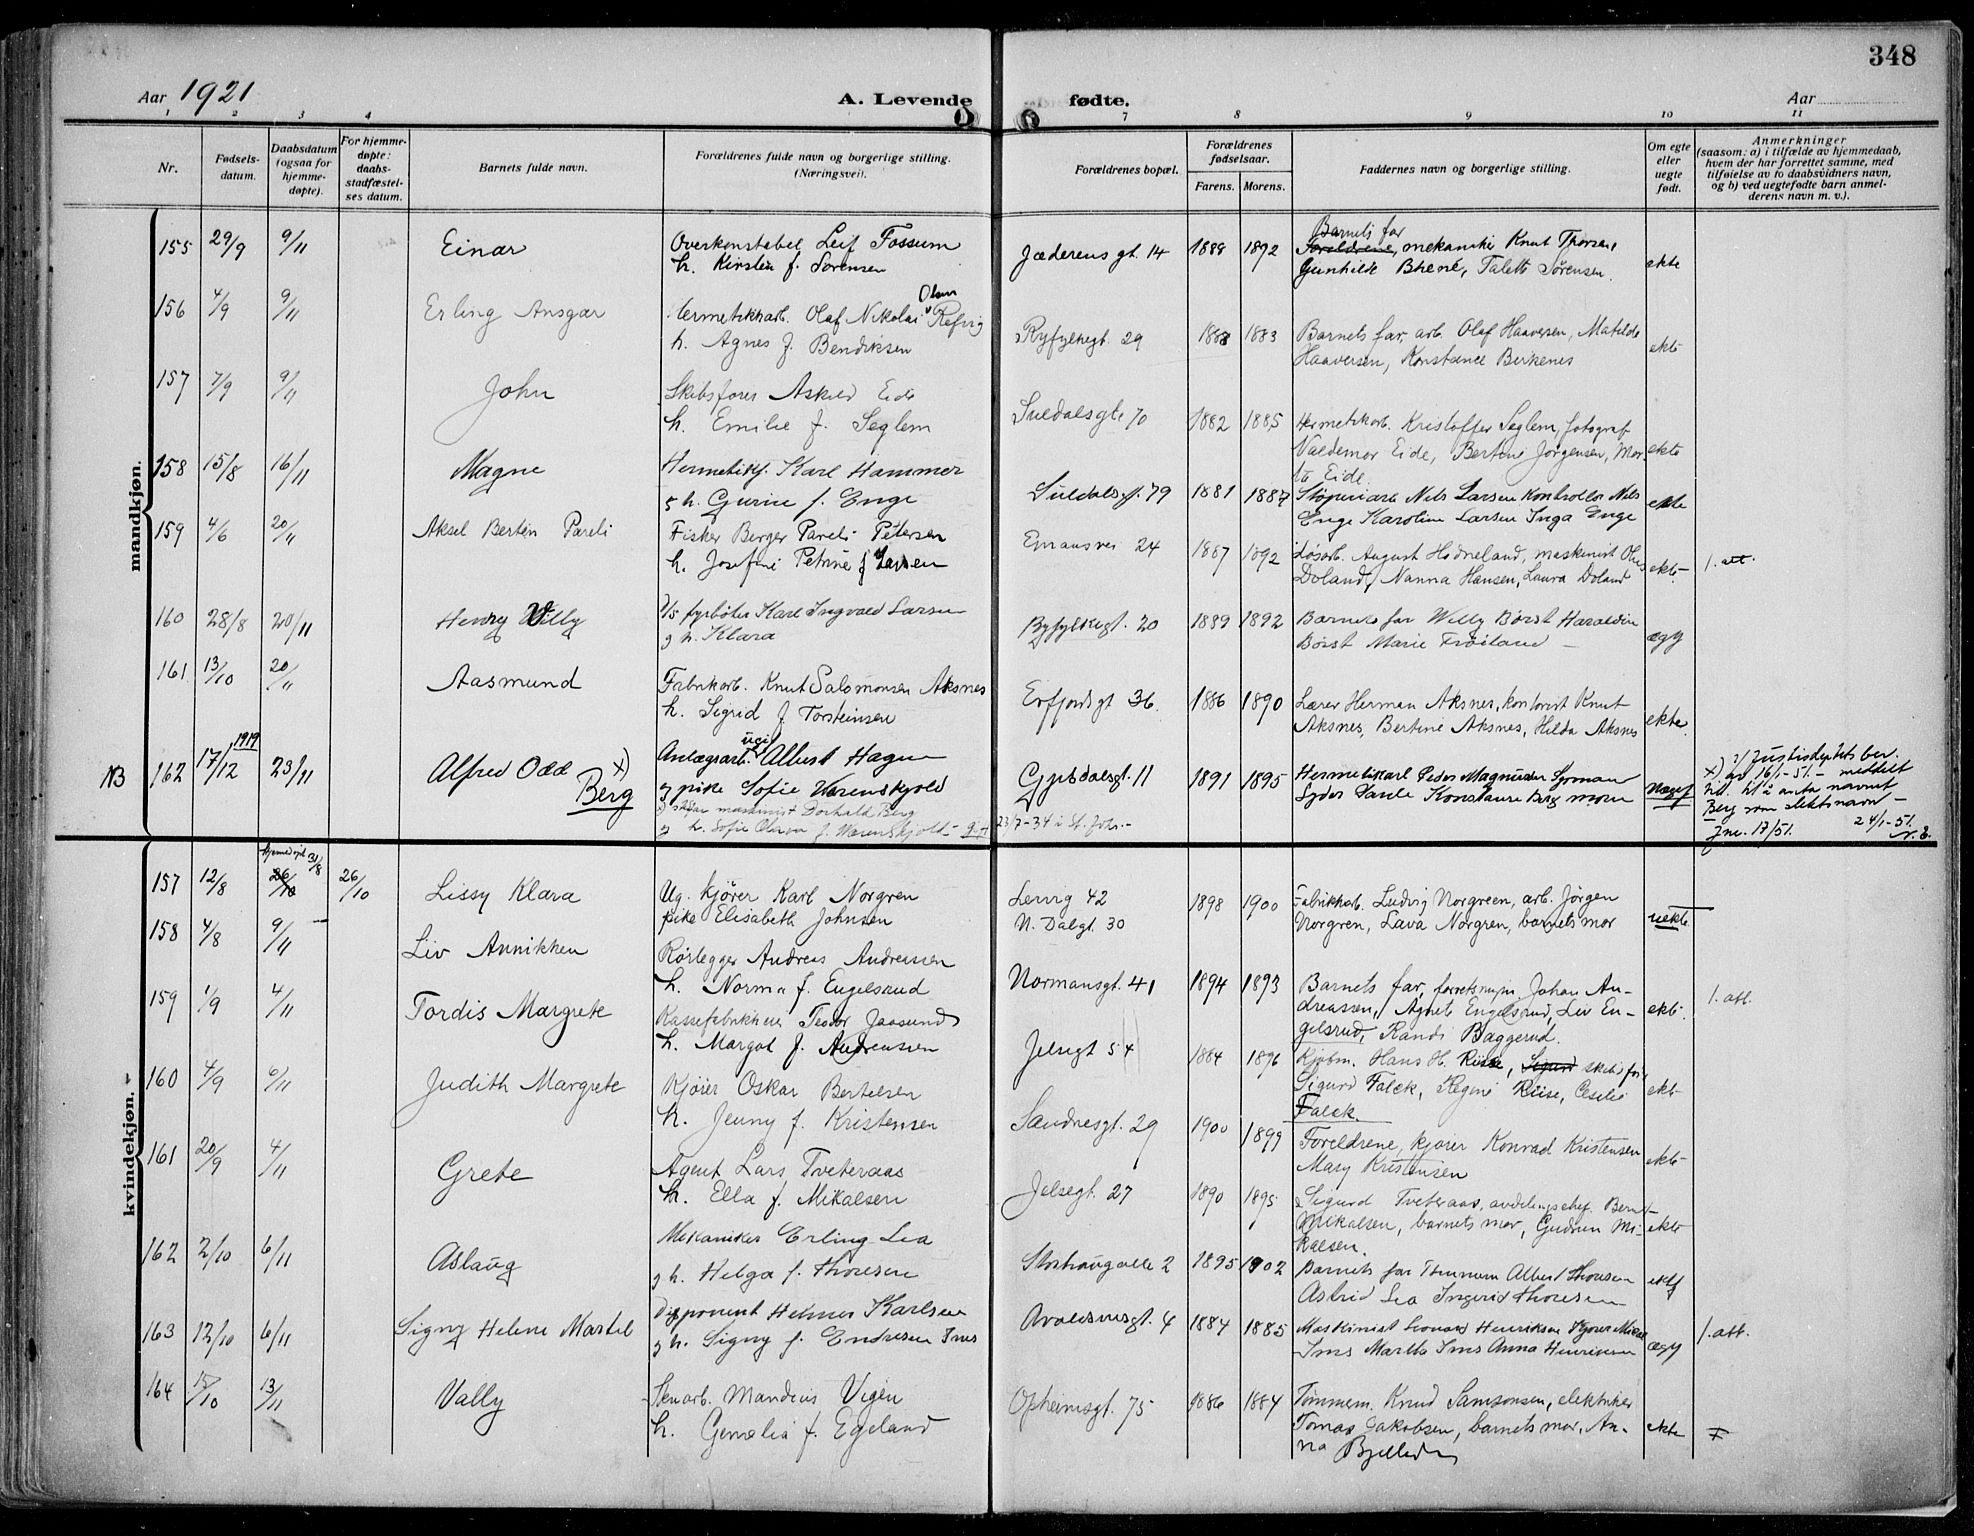 348
Aar 1921
A. Levende fødte.
Aar
1 2 3 4 7 8 9 10 11
Nr.
Fødsels-
datum.
Daabsdatum
(ogsaa for
hjemme-
døpte).
For hjemme-
døpte:
daabs-
stadfæstel-
ses datum.
Barnets fulde navn.
Forældrenes fulde navn og borgerlige stilling.
(Næringsvei).
Forældrenes bopæl.
Forældrenes
fødselsaar.
Farens. Morens.
Faddernes navn og borgerlige stilling.
Om egte
eller
uegte
født.
Anmerkninger
(saasom: a) i tilfælde av hjemmedaab,
hvem der har forrettet samme, med
tilføielse av to daabsvidners navn,
og b) ved uegtefødte barn anmel-
derens navn m. v.).
mandkjøn.
155 29/9 9/11 Einar
Overkonstabel Leif Fossum
h. Kirsten f. Sørensen
Jæderens gt. 14 1888 1892
Barnets far
Foreldrene, mekaniker Knut Thorsen,
Gunhilde Bhene, Talette Sørensen.
ekte
156 4/9 9/11 Erling Ansgar
Olsen
Hermetikkarb. Olaf Nikolai Refvig
h. Agnes f. Bendiksen
Ryfylkegt. 29 1888 1883
Barnets far, arb. Olaf Haaversen, Matilde
Haaversen, Konstance Berkenes
ekte
157 7/9 9/11 John
Skibsfører Askild Eide
h. Emilie f. Seglem
Suldalsgte 70 1882 1885
Hermetikarb. Kristoffer Seglem, fotograf
Valdemar Eide, Bertine Jørgensen, Mar-
ta Eide.
ekte
158 15/8 16/11 Magne
Hermetikf. Karl Hammer
g h. Gurine f. Enge
Suldalsgt. 79 1881 1887
Støperiarb Nils Larsen Kontrollør Nils
Enge Karoline Larsen Inga Enge
ekte
159 4/6 20/11 Aksel Bertin Pareli
Fisker Berger Pareli Petersen
h. Josefine Petrine f Larsen
Emausvei 24 1887 1892
Løsarb. August Hodneland, maskinist
Doland, Nanna Hansen, Laura Doland
ekte 1. att.
160 28/8 20/11 Henry Willy
D/S fyrbøter Karl Ingvald Larsen
g h. Klara
Ryfylkegt. 20 1889 1892
Barnets far Willy Børst Haraldine
Børst Marie Frøiland
ægt
161 13/10 20/11 Aasmund
Fabrikarb. Knut Salomonsen Aksnes
h. Sigrid f Torsteinsen
Erfjordsgt 36 1886 1890
Lærer Herman Aksnes, kontorist Knut
Aksnes, Bertine Aksnes, Hilda Aksnes
ekte
NB 162 17/12 1919 23/11 Alfred Odd x)
Berg
ugi
Anlægsarb. Albert Hagen
g pike Sofie Værenskjold
maskinist Dorhald Berg
g h. Sofie Olava f. Wærenskjold - gift
23/7-34 i St. Joh.-
Gyesdalsgt. 11 1891 1895
Hermetikarb Peder Magnus
Konstanse Berg moren
uægt
x) Justisdeptets bev.
av 16/1-51 - meddelt
til å anta navnet
Berg som slektsnavn -
Jnr. 17/51. 24/1-51.
kvindekjøn.
157 12/8 hjemmedøpt 31/8 26/10 26/10 Lissy Klara
Ug. kjører Karl Norgren
pike Elisabeth Johnsen
Lervig 42
N. Dalgt. 30
1898 1900
Fabrikkarb. Ludvig Norgreen, arb. Jørgen
Norgren, Lava Norgren, barnets mor
uekte
158 4/8 9/11 Liv Annikken
Rørlegger Andreas Andreassen
h. Norma f. Engelsrud
Normansgt. 41 1894 1893
Barnets far, Johan An-
dreassen, Agnete Engelsrud, Liv En-
gelsrud, Randi Baggerud.
ekte 1. att.
159 1/9 4/11 Tordis Margrete
Kassefabrikkeier Teodor Jaasund
h. Margot f. Andreassen
Jelsegt 54 1884 1896
Kjøbm. Hans H. Riise, Sigurd skibsfør
Sigurd Falck, Regine Riise, Cesilie
Falck.
ekte
160 4/9 6/11 Judith Margrete
Kjører Oskar Bertelsen
h. Jenny f. Kristensen
Sandnesgt. 29 1900 1899
Foreldrene, kjører Konrad Kristensen
Mary Kristensen
ekte
161 20/9 4/11 Grete
Agent Lars Tveteraas
h. Ella f. Mikalsen
Jelsegt. 27 1890 1895
Sigurd Tveteraas, avdelingschef Bernt
Mikalsen, barnets mor, Gudrun Mi-
kalsen.
ekte
162 2/10 6/11 Aslaug
Mekaniker Erling Lea
g h. Helga f. Thoresen
Storhaugalle 2 1895 1902
Barnets far Tømmerm Albert Thoresen
Astrid Lea Ingerid Thoresen
ekte
163 12/10 6/11 Signy Helene Martel
Disponent Helmer Karlsen
g h. Signy f. Endresen Ims
Avaldsnesgt. 4 1884 1885
Maskinist Leonard Henriksen Kjører Mikal
Ims Martha Ims Anna Henriksen
ægt 1. att.
164 15/10 13/11 Vally
Stenarb. Mandius Vigen
h. Gemelia f. Egeland
Opheimsgt. 75 1886 1884
Tømmerm. Knud Samsonsen, elektriker
Tomas Jakobsen, barnets mor, An-
na Bjelland
ekte